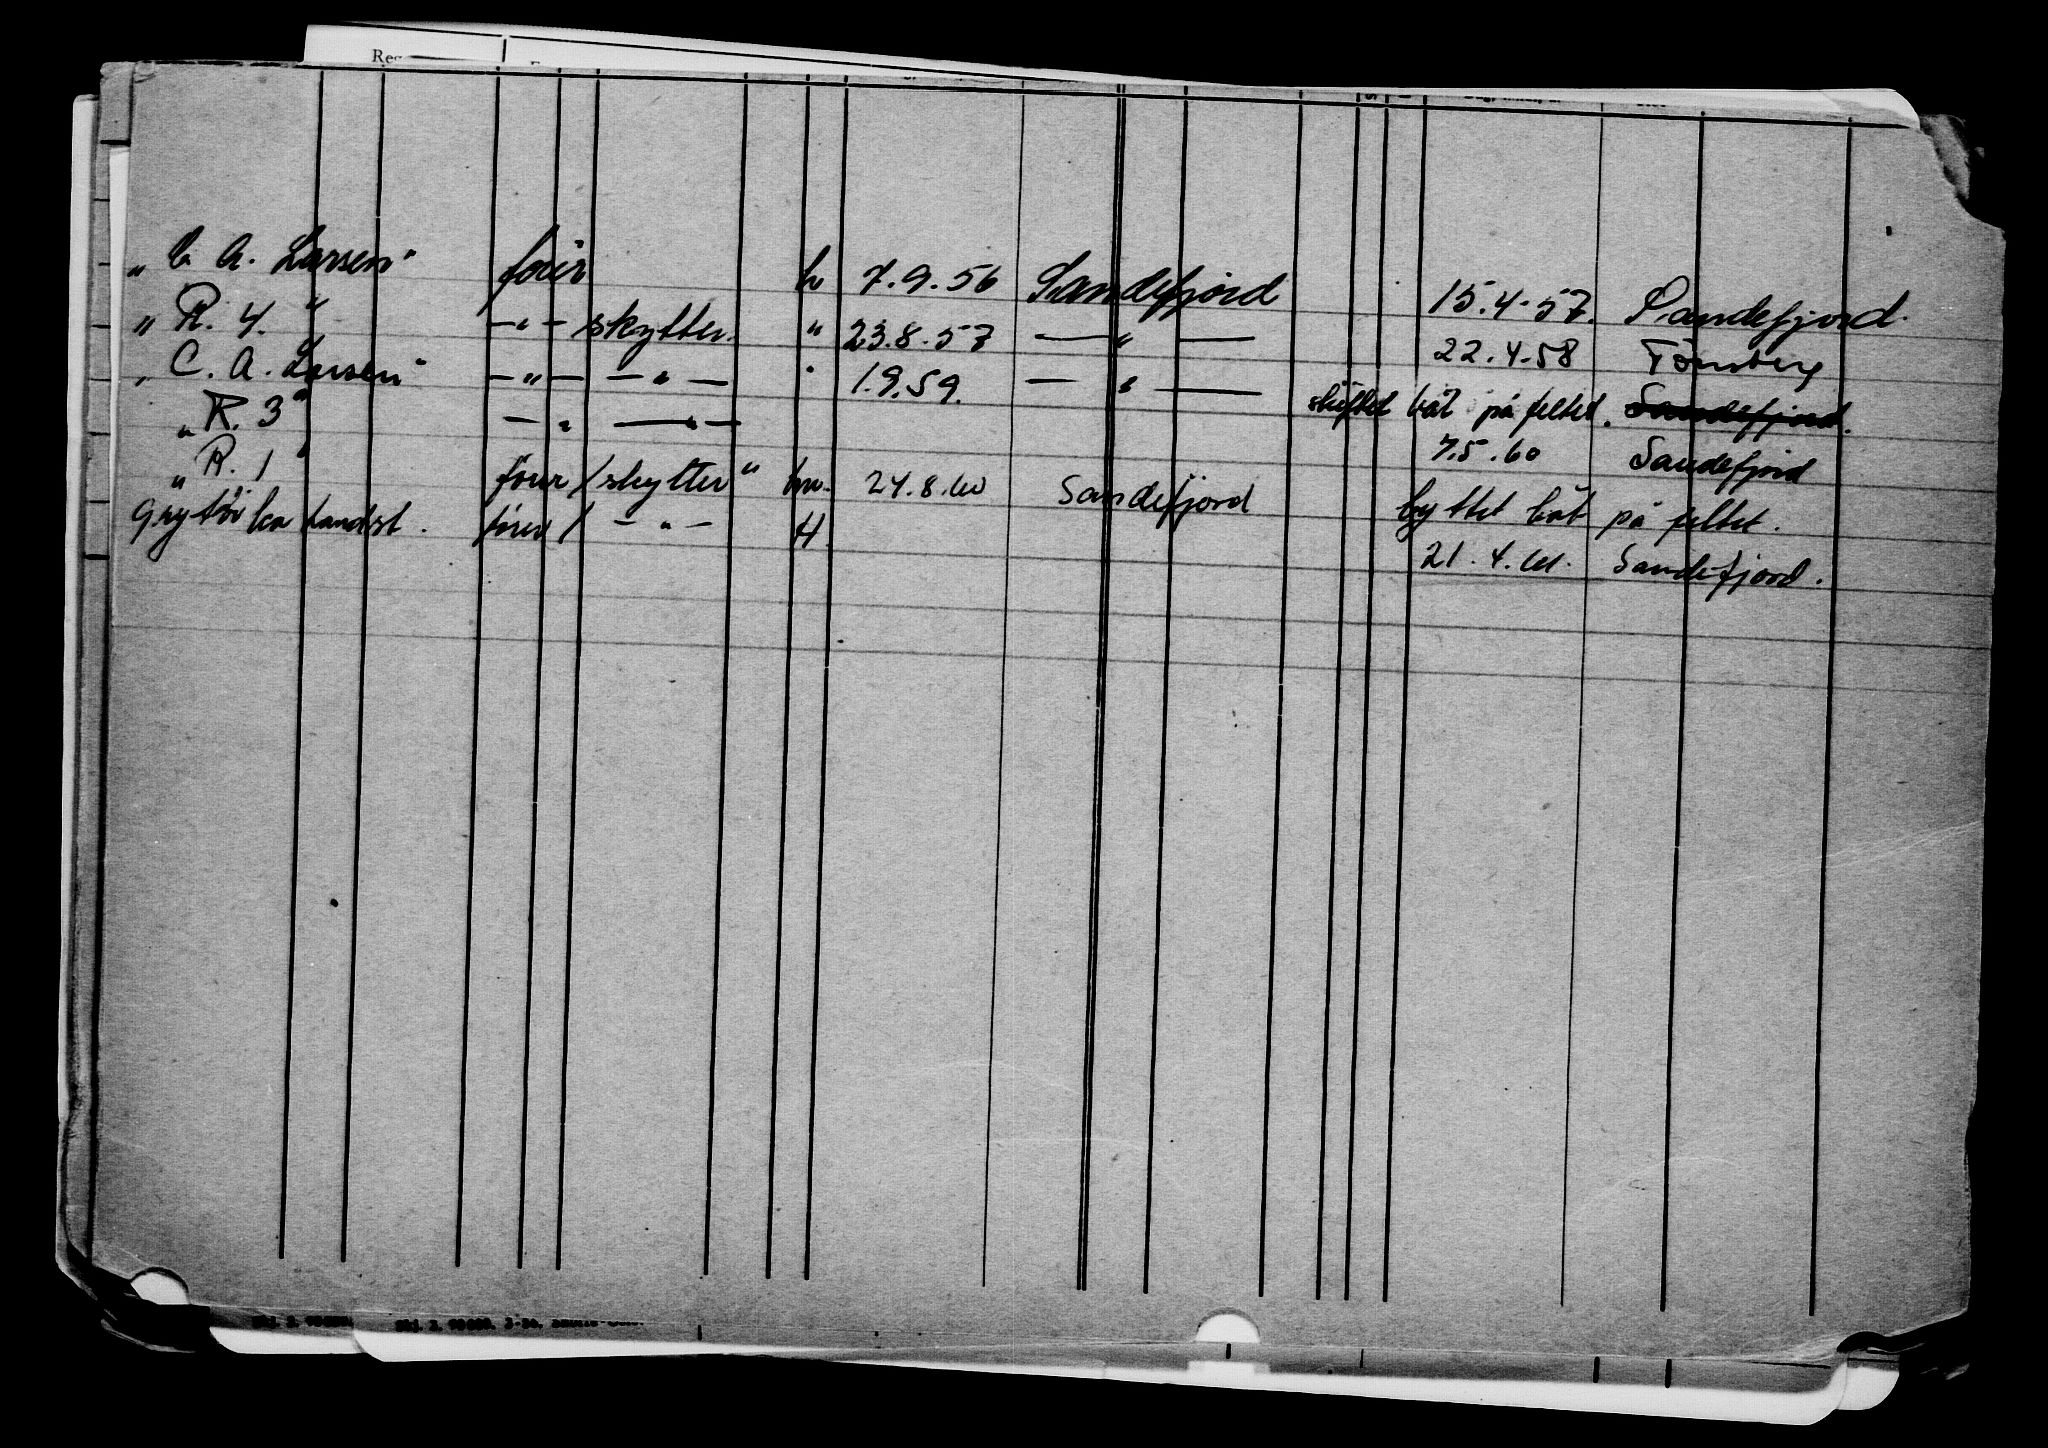 Reg
„C. A. Larsen" fører h 7.9.56 Sandefjord 15.4.57. Sandefjord.
„R. 4." —„— skytter. " 23.8.57 —„— 22.4.58 Tønsberg
„C. A. Larsen" —„— —„— " 1.9.59. —„— skiftet båt på feltet. Sandefjord.
„R. 3" —„— —„— 7.5.60 Sandefjord
„R. 1" fører/skytter" hv. 24.8.60 Sandefjord byttet båt på feltet.
landst. fører/ —„— H. 21.4.61. Sandefjord.